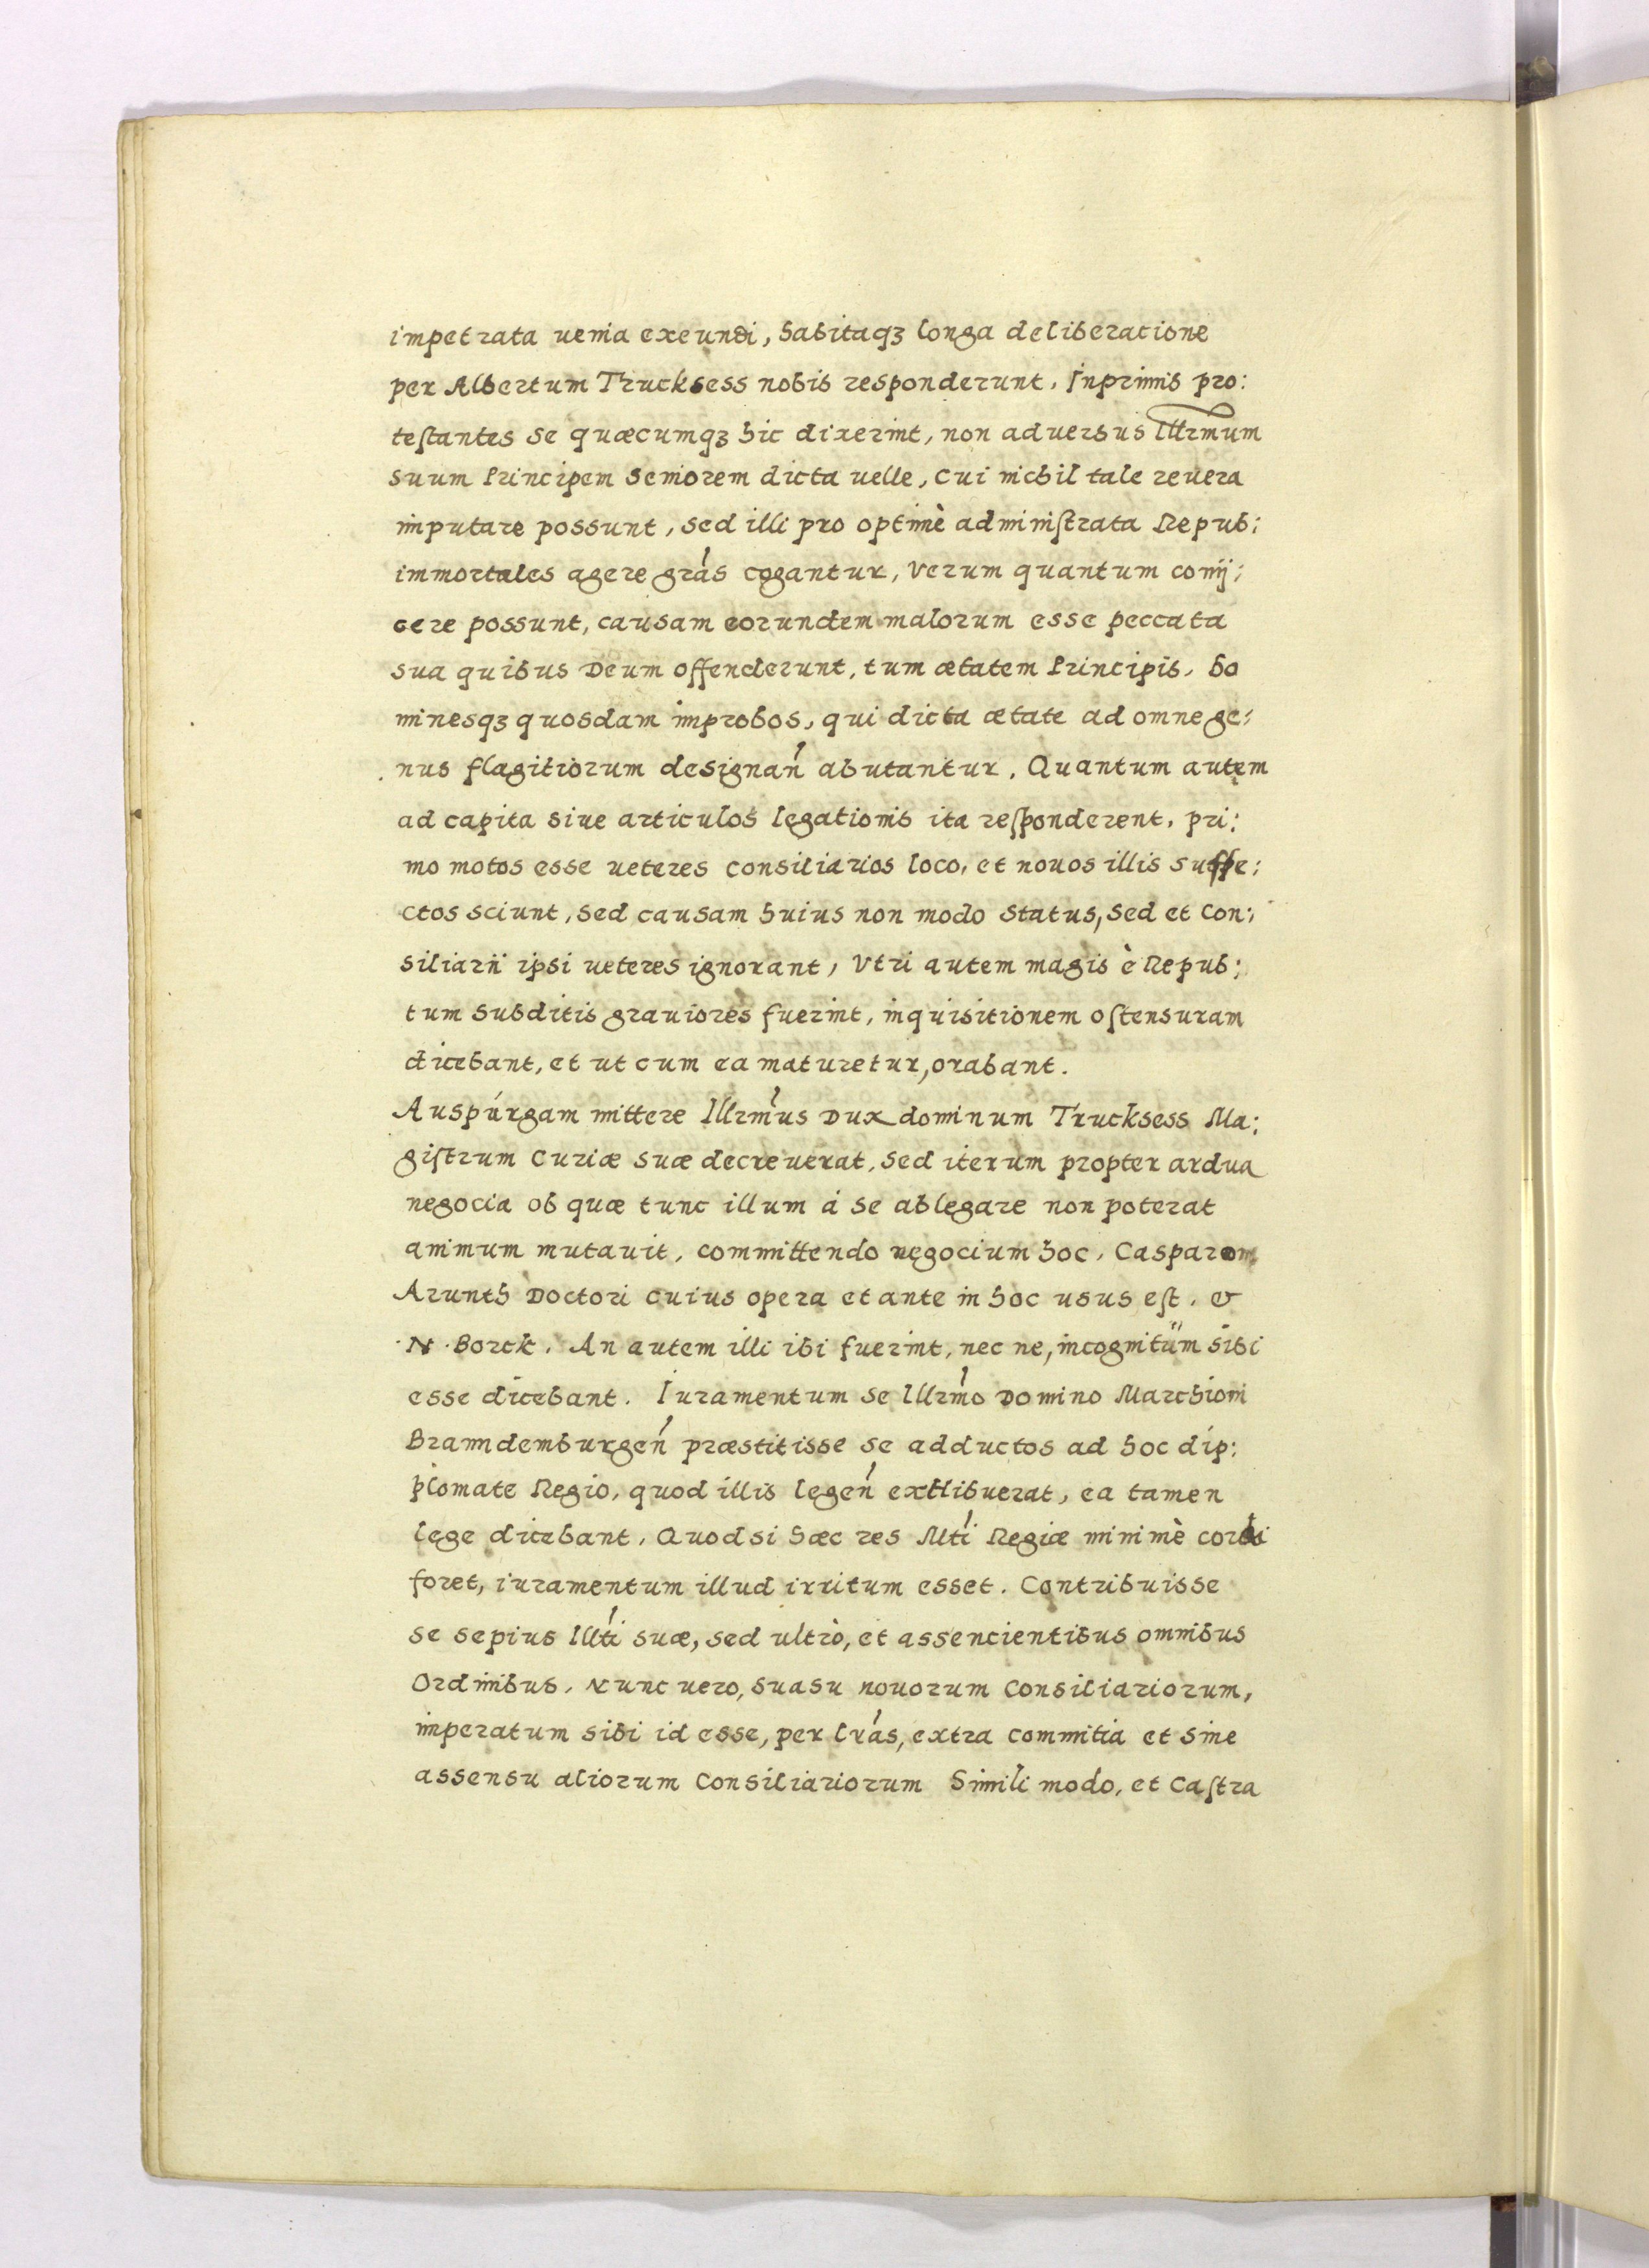 impetrata uenia exeundi, habitaqȝ longa deliberatione
per Albertum Trucksess nobis responderunt. Inprimis pro:
teſtantes se quæcumqȝ hic dixerint, non aduersus Illrmum
suum Principem Seniorem dicta uelle, cui nichil tale reuera
imputare possunt, sed illi pro optimè adminiſtrata Repub:
immortales agere grãs cogantur, Verum quantum conij:
cere possunt, causam eorundem malorum esse peccata
sua quibus Deum offenderunt, tum ætatem Principis, ho
minesqȝ quosdam improbos, qui dicta ætate ad omne ge:
nus flagitiorum designañ abutantur. Quantum autem
ad capita siue articulos legationis ita reſponderent. pri:
mo motos esse ueteres consiliarios loco, et nouos illis suffe:
ctos sciunt, sed causam huius non modo status, sed et Con:
siliarii ipsi ueteres ignorant, Vtri autem magis è Repub:
tum subditis grauiores fuerint, inquisitionem oſtensuram
dicebant, et ut cum ea maturetur, orabant.
Auspurgam mittere Illrmus Dux dominum Trucksess Ma:
giſtrum Curiæ suæ decreuerat, sed iterum propter ardua
negocia ob quæ tunc illum á se ablegare non poterat
animum mutauit, committendo negocium hoc, Casparom
Arunth Doctori cuius opera et ante in hoc usus eſt. &
N. Borck. An autem illi ibi fuerint, nec ne, incognitum sibi
esse dicebant. Iuramentum se Illrmo Domino Marchioni
Branndemburgeñ præstitisse se adductos ad hoc dip:
plomate Regio, quod illis legeñ exhibuerat, ea tamen
lege dicebant. Quodsi hæc res Mti Regiæ minimè cordi
foret, iuramentum illud irritum esset. Contribuisse
se sepius Illti suæ, sed ultrò, et assencientibus omnibus
Ordinibus. Nunc uero, suasu nouorum Consiliariorum,
imperatum sibi id esse, per lrãs, extra commitia et sine
assensu aliorum Consiliariorum Simili modo, et Caſtra